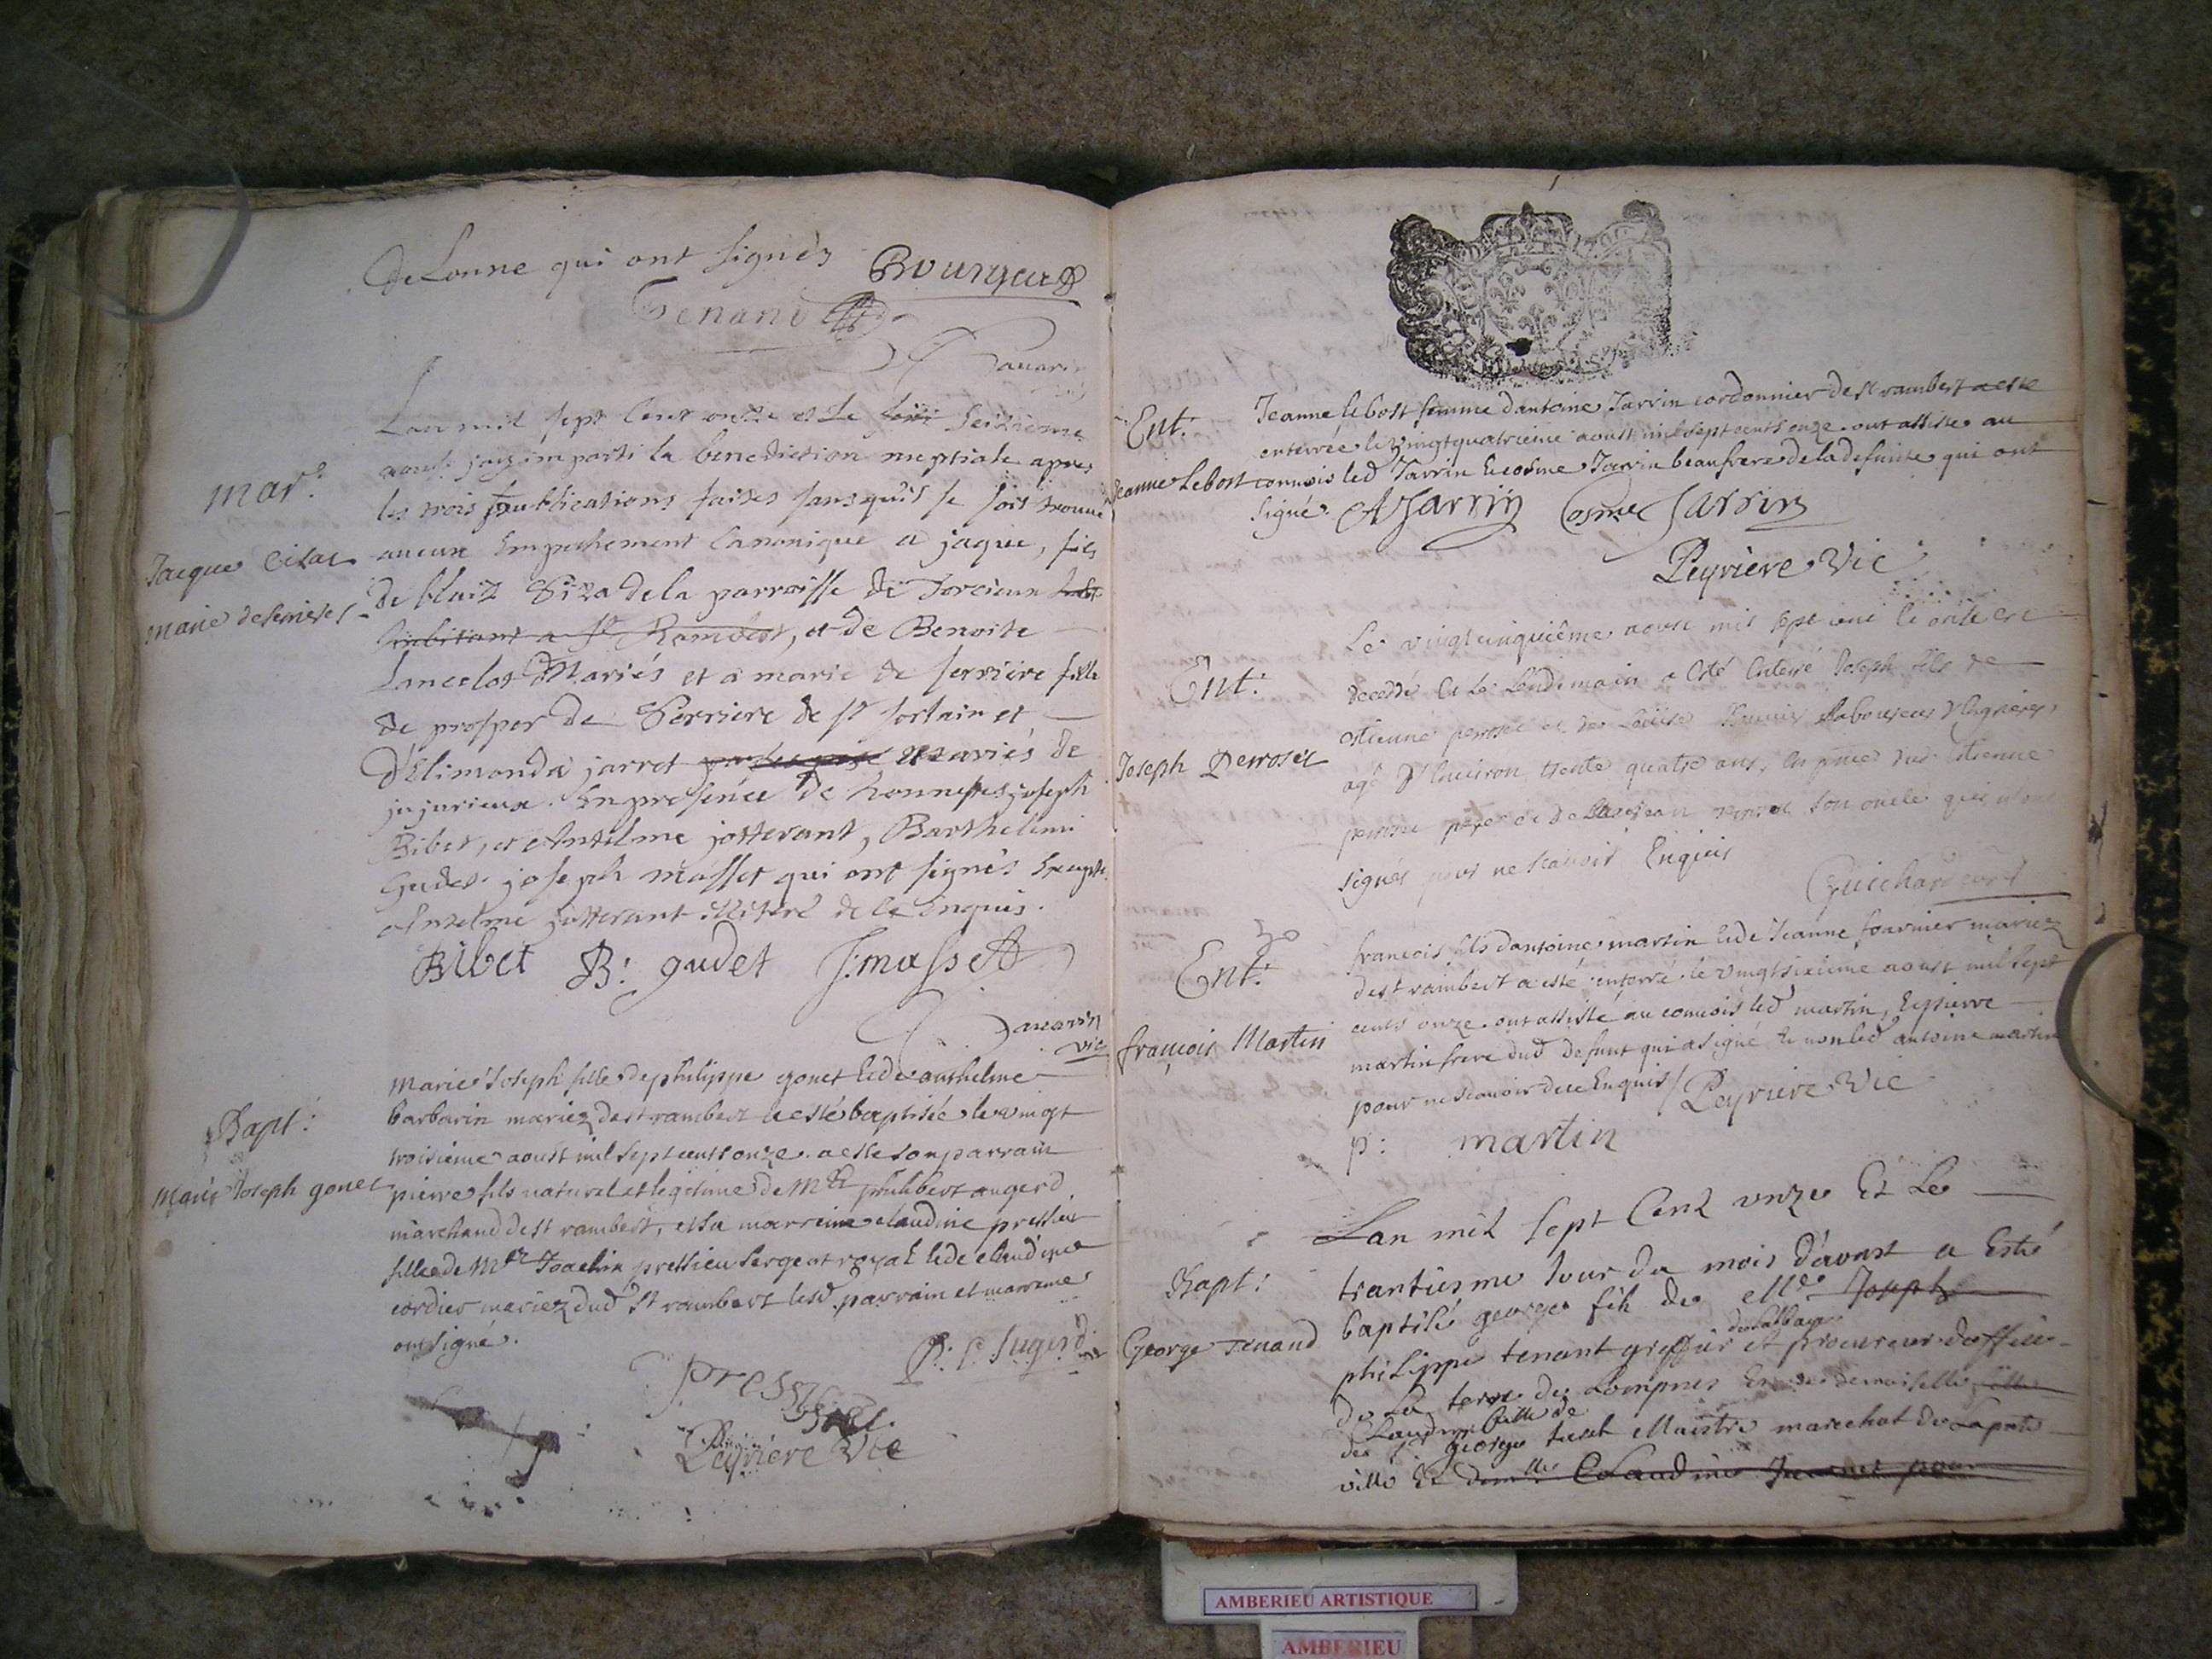 de Lonne qui ont signés Bourguet
Tenand
Savarin
Lan mil sept cent onze et le seizieme
aoust jay imparti la benediction nuptiale apres
mar:
les trois publications faites sans quis se soit trouué
Jacque
aucun Empechement Canonique a jaque, fils
de blaiz de la parroisse de Torcieux
marie de
habitant a st Rambert, et de Benoite
Lancelot Mariés et a marie de ferriere fille
de prosper de Ferriere de st sorlain et
d'Elimonda jarret mariés de
jujurieux. En presence de honnestes joseph
Bibet, et Antelme jotterant, Barthelemi
Gudet joseph masset qui ont signés Excepté
Antelme jotterant illiteré de ce Enquis.
Bibet B: gudet J: masset
Savarin
vic
Marie Joseph fille de philippe gonet et de anthelme
barbarin mariez de st rambert a esté baptisée le vingt
Bapt:
troisieme aoust mil sept cents onze. a esté son parrain
Marie Joseph gonet
pierre fils naturel et legitime de Mre philibert augerd
marchand de st rambert, et sa marreine claudine pressieu
fille de Mre Joachin pressieu sergent royal et de claudine
cordier mariez dud st rambert lesd parrain et marreine
ont signé.
Peyriere Vic
Ent:
Jeanne lebost femme dantoine Jarrin cordonnier de st rambert a esté
enterrée le vingt quatrieme aoust mil sept cents onze. ont assisté au
Jeanne Lebost
connois led Jarrin et cosme Jarrin beaufrere de la defunte qui ont
signé. A Jarrin Cosme Jarrin
Peyriere Vic
Le vingt cinquiême aoust mil sept cent onze est
Ent:
decedé et le lendemain a esté enterré Joseph fils de
estienne perroset et de Laboureurs
Joseph Perroset
agé d'Environ trente quatre ans, En pnce dud. Etienne
perroset pere et de jean perroset son oncle qui n'ont
signés pour ne scavoir Enquis
Guichard curé
Ent:
francois fils dantoine martin et de Jeanne fournier mariez
de st rambert a esté enterré le vingt sixieme aoust mil sept
cents onze. ont assisté au connois led martin, et pierre
françois Martin
martin frere dud defunt qui a signé et non led antoine martin
pour ne scavoir de ce Enquis / Peyriere Vic
p: martin
Lan mil sept Cent unze Et Le
Bapt:
trantiesme Jour du mois d'avoust a Esté
baptisé george fils de Me Joseph
George Tenand
philippe tenant greffier et procureur doffice
de La terre de Lompnes Et de demoiselle fille
Claudine fille de
des sr george Maistre marechal de Laprte
ville Et Claudine pour
AMBERIEU ARTISTIQUE
AMBERIEU